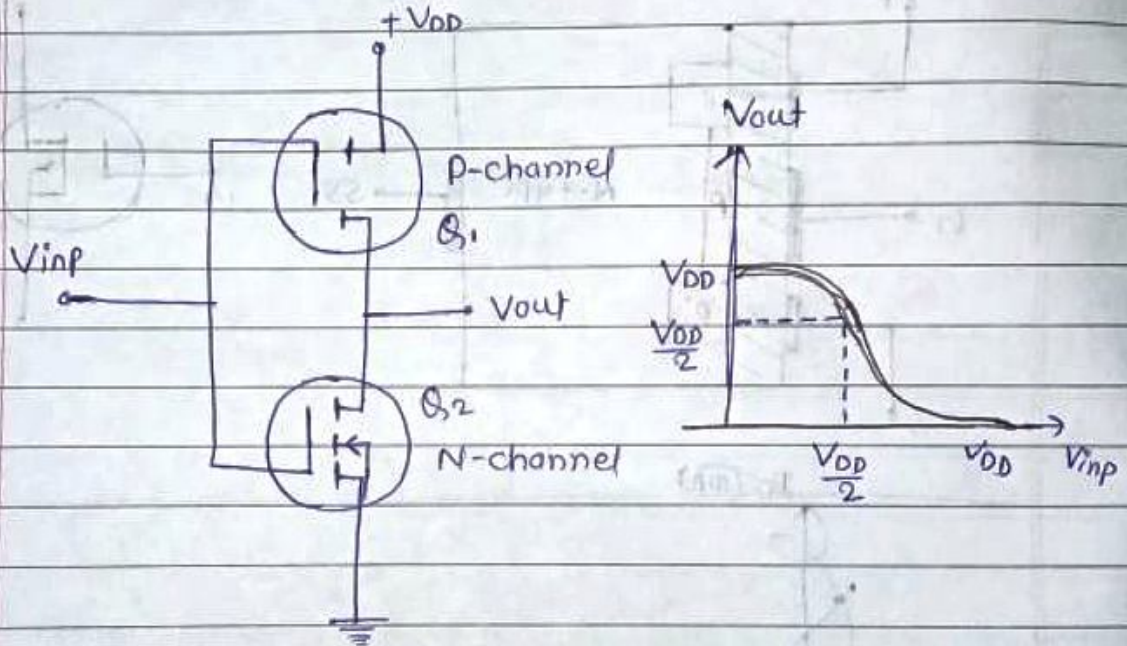 + VDD
P-channel
Q1
Vinp
Vout
Q2
N-channel
Vout
VDD
VDD
2
VDD
2
VDD
Vinp